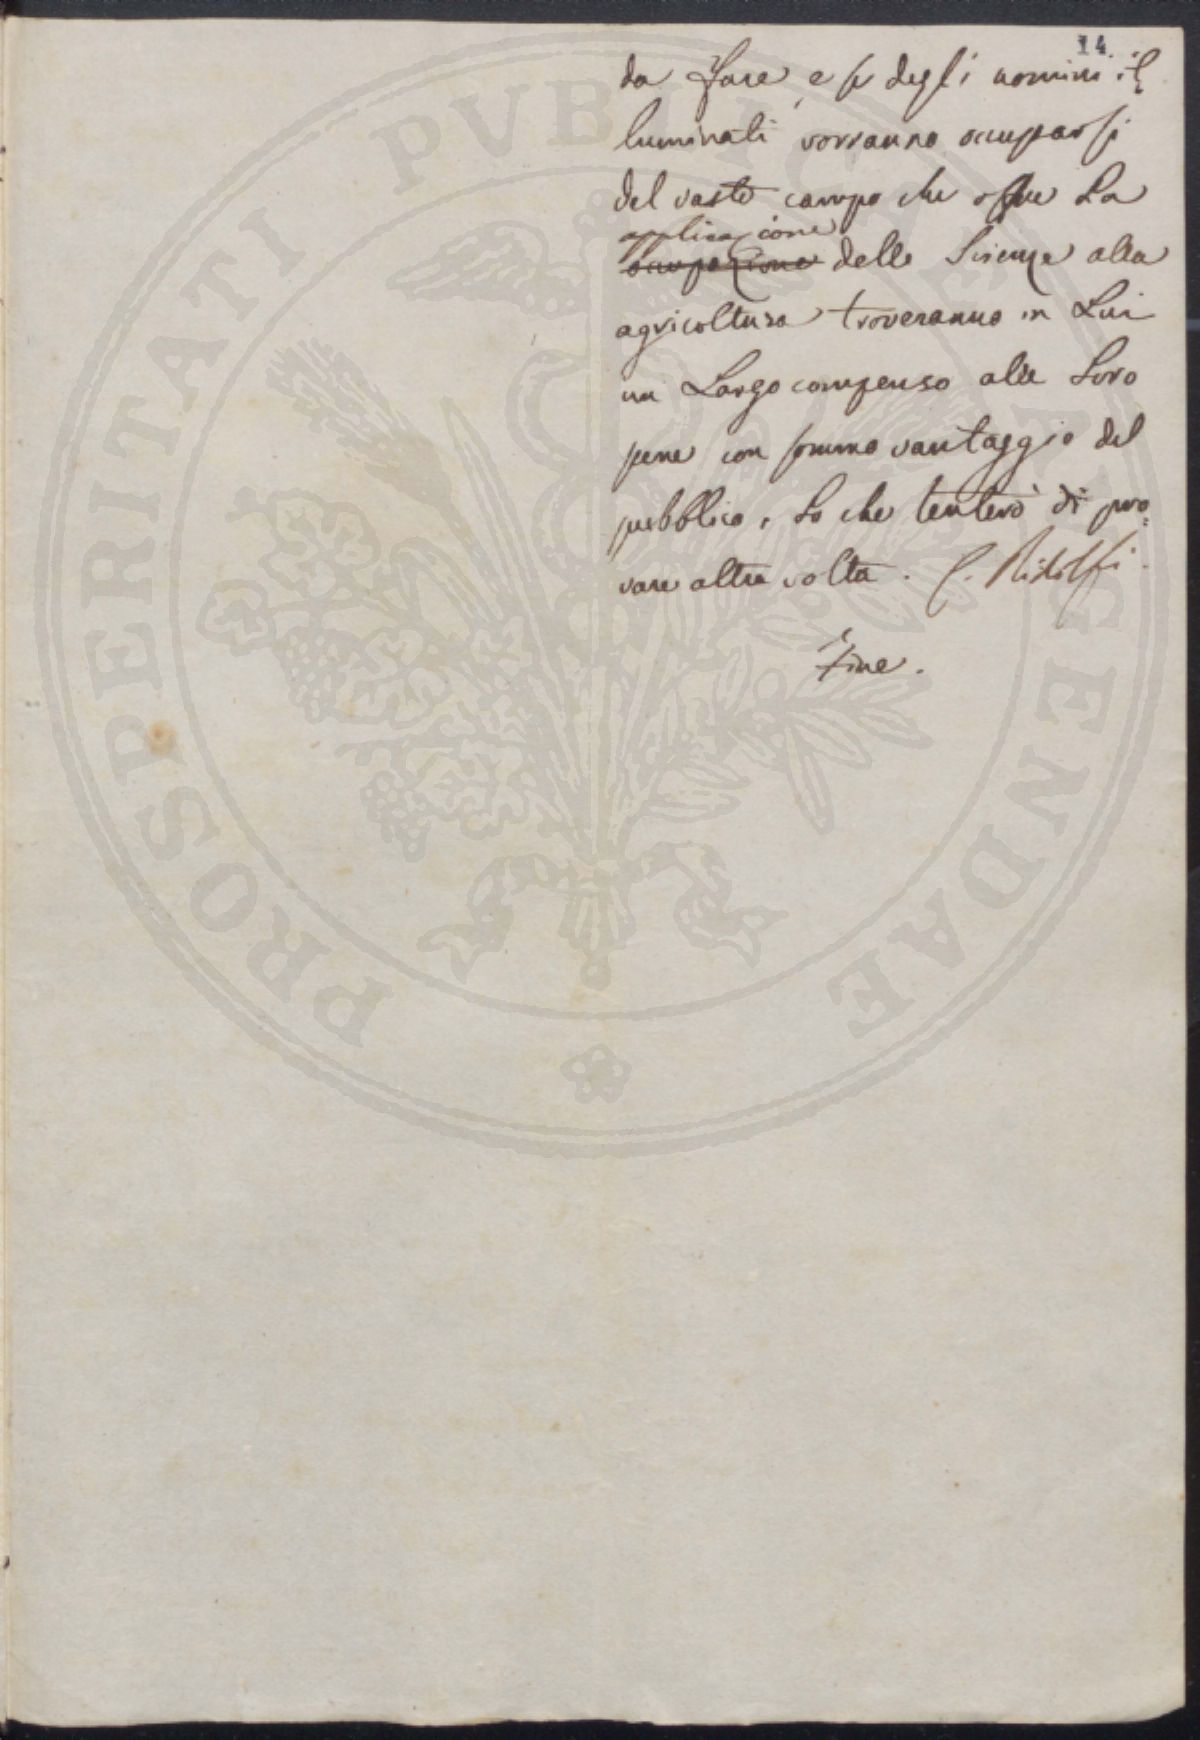 14
da fare, e se degli uomini il=
luminati vorranno occuparsi
del vasto campo che offre La
applicazione
occupazione delle Scienze alla
agricoltura troveranno in Lui
un Largo compenso alle Loro
pene con sommo vantaggio del
pubblico, Lo che tenterò di pro=
vare altra volta. C. Ridolfi.
Fine.
PROSPERITATI PVBLICAE AVGENDAE